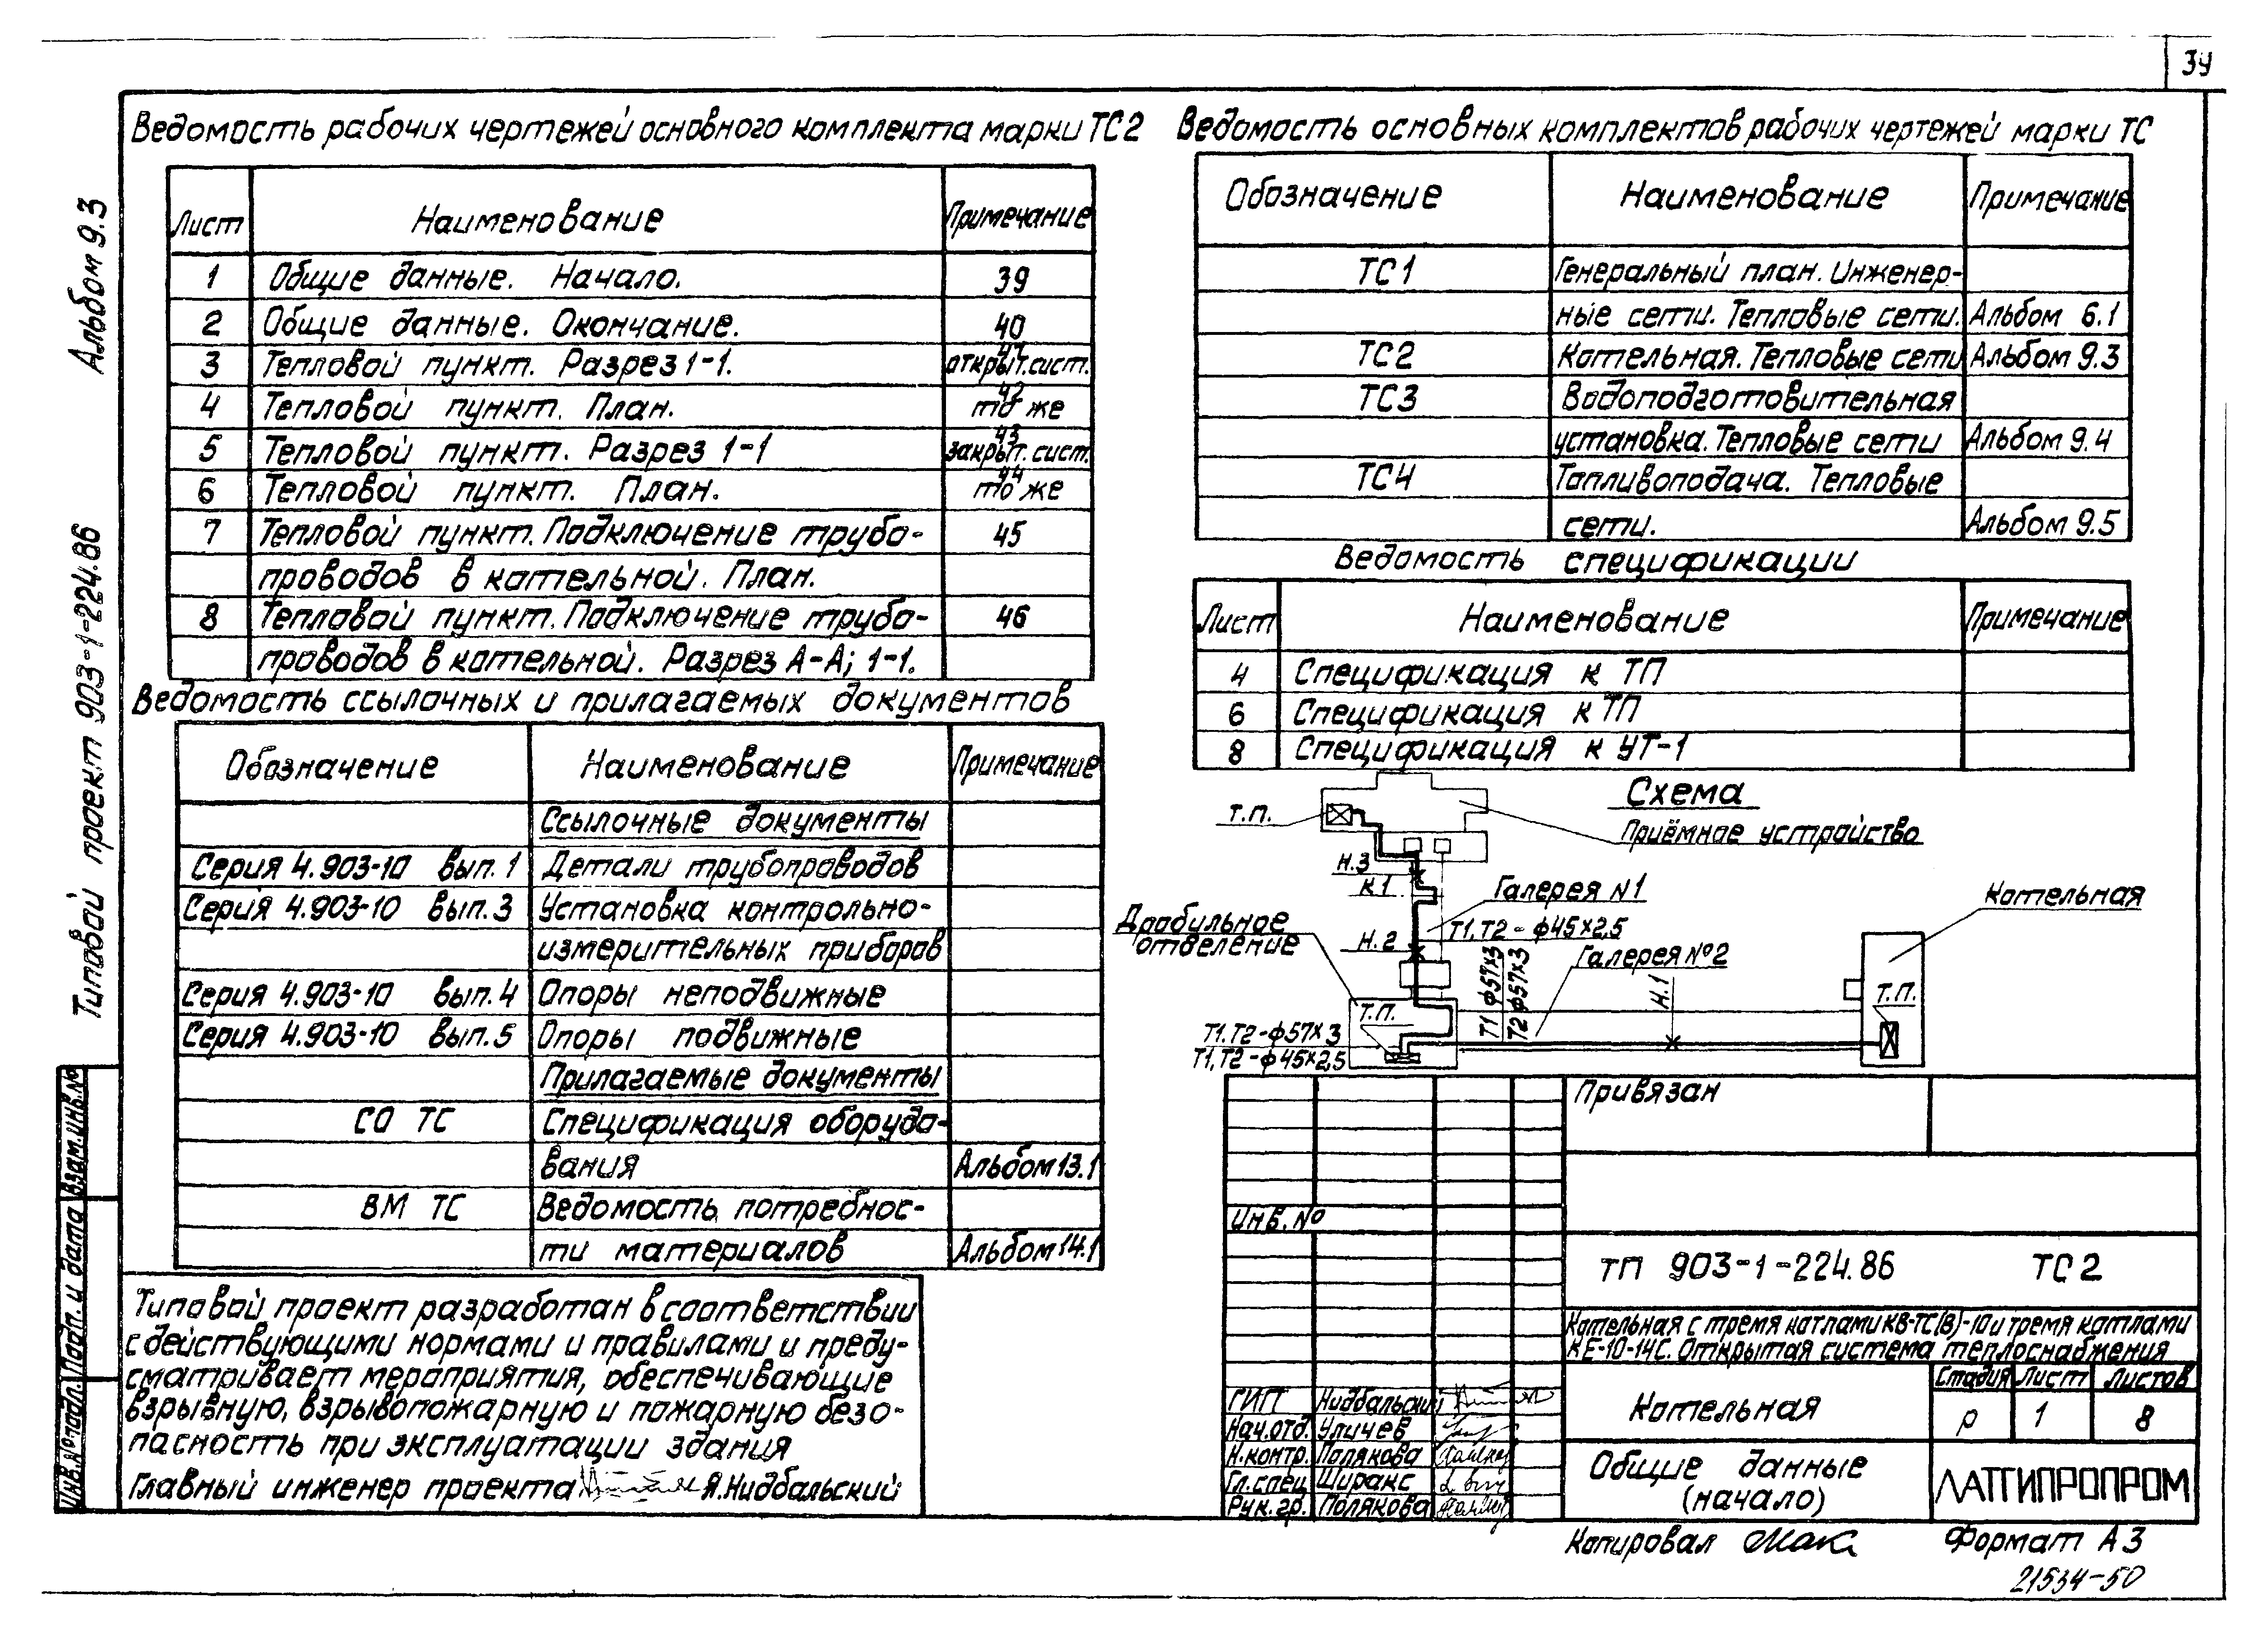 39
Альбом 9.3
Типовой проект 903-1-224.86
Ведомость рабочих чертежей основного комплекта марки ТС2
Лист Наименование Примечание
1 Общие данные. Начало. 39
2 Общие данные. Окончание. 40
3 Тепловой пункт. Разрез 1-1. 41 открыт.сист.
4 Тепловой пункт. План. 42 то же
5 Тепловой пункт. Разрез 1-1 43 закрыт.сист.
6 Тепловой пункт. План. 44 то же
7 Тепловой пункт. Подключение трубо- 45
проводов в котельной. План.
8 Тепловой пункт. Подключение трубо- 46
проводов в котельной. Разрез А-А; 1-1.
Ведомость ссылочных и прилагаемых документов
Обозначение Наименование Примечание
Ссылочные документы
Серия 4.903-10 вып. 1 Детали трубопроводов
Серия 4.903-10 вып. 3 Установка контрольно-
измерительных приборов
Серия 4.903-10 вып. 4 Опоры неподвижные
Серия 4.903-10 вып. 5 Опоры подвижные
Прилагаемые документы
СО ТС Спецификация оборудо-
вания Альбом 13.1
ВМ ТС Ведомость потребнос-
ти материалов Альбом 14.1
Типовой проект разработан в соответствии
с действующими нормами и правилами и преду-
сматривает мероприятия, обеспечивающие
взрывную, взрывопожарную и пожарную безо-
пасность при эксплуатации здания
Главный инженер проекта Я.Нидбальский
Инв.№ подл. Подп. и дата Взам.инв.№
Ведомость основных комплектов рабочих чертежей марки ТС
Обозначение Наименование Примечание
ТС1 Генеральный план. Инженер-
ные сети. Тепловые сети. Альбом 6.1
ТС2 Котельная. Тепловые сети Альбом 9.3
ТС3 Водоподготовительная
установка. Тепловые сети Альбом 9.4
ТС4 Топливоподача. Тепловые
сети. Альбом 9.5
Ведомость спецификации
Лист Наименование Примечание
4 Спецификация к ТП
6 Спецификация к ТП
8 Спецификация к УТ-1
Схема
Т.П.
Приёмное устройство
Н.3
К.1
Галерея N1
Котельная
Дробильное
отделение
Н.2
Т1,Т2-ф45×2,5
Галерея №2
Т1 ф57×3
Т2 ф57×3
Н.1
Т.П.
Т.П.
Т1.Т2-ф57×3
Т1,Т2-ф45×2,5
Привязан
Инв.№
ТП 903-1-224.86 ТС2
Котельная с тремя котлами КВ-ТС(В)-10 и тремя котлами
КЕ-10-14С. Открытая система теплоснабжения
Котельная
Стадия Лист Листов
Р 1 8
ГИП Нидбальский
Нач.отд. Уличев
Н.контр. Полякова
Гл.спец Ширакс
Рук.гр. Полякова
Общие данные
(начало)
ЛАТГИПРОПРОМ
Копировал Формат А3
21534-50